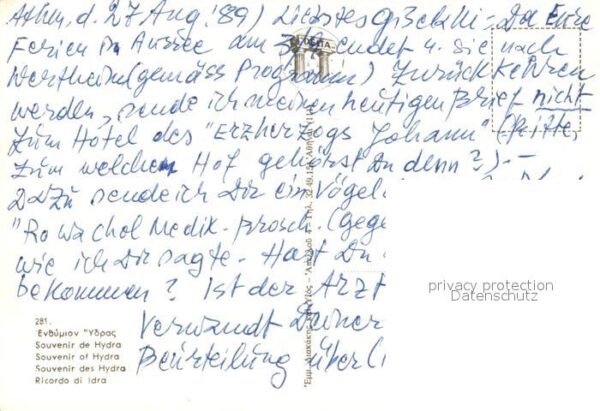 Athen, d. 27 Aug. '89) Liebstes Giselchi = Da Eure
Ferien in Aussee am 3 endet u. sie nach
Wertheim gemäss Programm) zurückkehren
werden, sende ich meinen heutigen Brief nicht
zum Hotel des "Erzherzogs Johann" (Bitte,
zum welchen Hof gehörst Du denn?) –
Dazu sende ich Dir ein Vögel
"Rowachol Medik. Brosch. (gege
wie ich Dir sagte. Hast Du
bekommen? Ist der Arzt
Verwandt Deiner
Beurteilung über
281.
Ενθύμιον Ύδρας
Souvenir de Hydra
Souvenir of Hydra
Souvenir des Hydra
Ricordo di Idra
privacy protection
Datenschutz